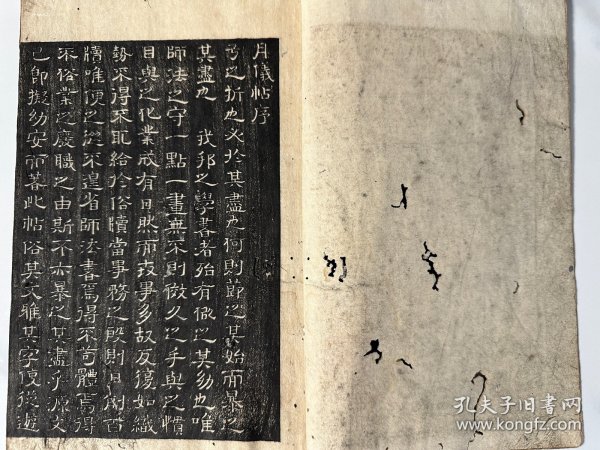 月儀帖序
弓之折也必於其盡也何則節之其始而暴之
其盡也 我邦之學書者殆有似之其幼也唯
師法之守一點一畫無不則倣久之手與之慣
目與之化業成有日然而夜事多故反復如織
勢不得不取給於俗牘當事務之殷則日削百
牘唯便之從不遑省師法書焉得不苟體焉得
不俗業之廢職之由斯不亦暴之其盡乎源文
已即擬幼安而著此帖俗其文雅其字使從遊
孔夫子旧書网
www.kongfz.com